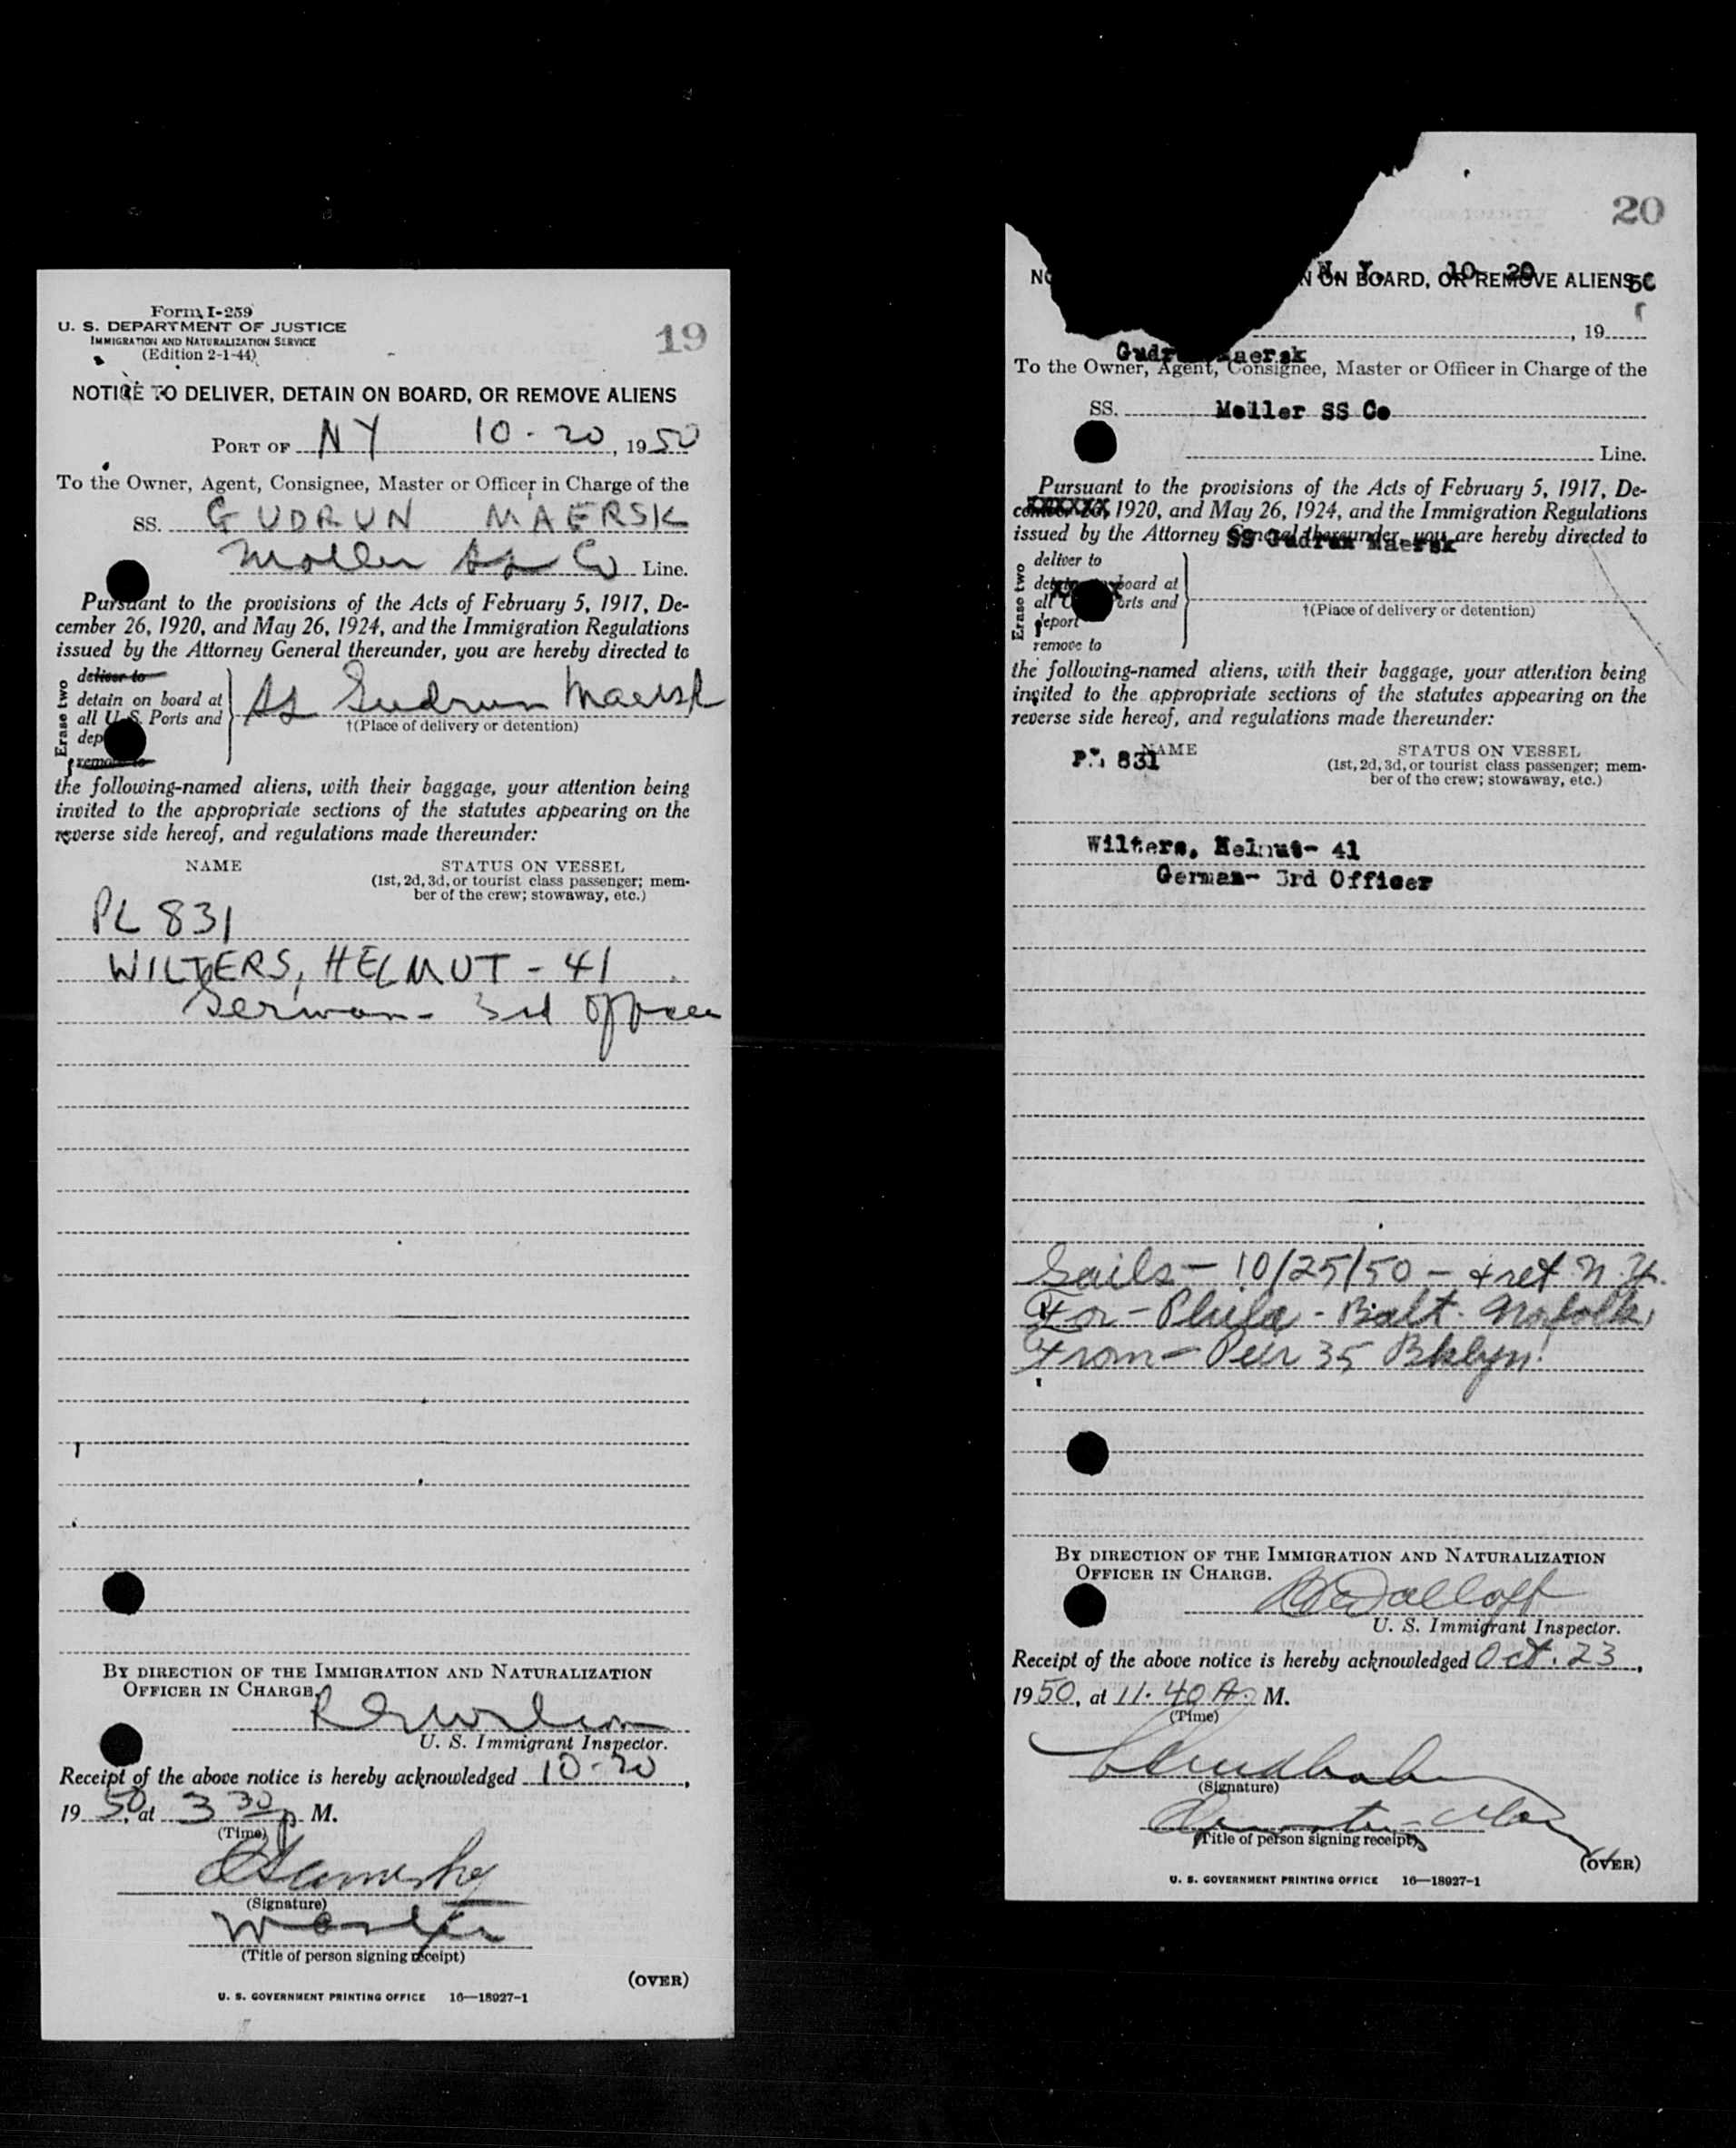 Form I-259
U. S. DEPARTMENT OF JUSTICE
IMMIGRATION AND NATURALIZATION SERVICE
(Edition 2-1-44)
19
NOTICE TO DELIVER, DETAIN ON BOARD, OR REMOVE ALIENS
PORT OF NY 10-20, 1950
To the Owner, Agent, Consignee, Master or Officer in Charge of the
SS. GUDRUN MAERSK
Moller SS Co Line.
Pursuant to the provisions of the Acts of February 5, 1917, De-
cember 26, 1920, and May 26, 1924, and the Immigration Regulations
issued by the Attorney General thereunder, you are hereby directed to
Erase two
deliver to
detain on board at
all U. S. Ports and
dep
remove to
SS Gudrun Maersk
†(Place of delivery or detention)
the following-named aliens, with their baggage, your attention being
invited to the appropriate sections of the statutes appearing on the
reverse side hereof, and regulations made thereunder:
NAME STATUS ON VESSEL
(1st, 2d, 3d, or tourist class passenger; mem-
ber of the crew; stowaway, etc.)
PL 831
WILTERS, HELMUT - 41
German - 3rd Officer
BY DIRECTION OF THE IMMIGRATION AND NATURALIZATION
OFFICER IN CHARGE.
U. S. Immigrant Inspector.
Receipt of the above notice is hereby acknowledged 10-20,
1950, at 3 30 p M.
(Time)
(Signature)
Master
(Title of person signing receipt)
(OVER)
U. S. GOVERNMENT PRINTING OFFICE 16—18927-1
20
N. Y. 10 20 50
N ON BOARD, OR REMOVE ALIENS
, 19
Gudr Maersk
To the Owner, Agent, Consignee, Master or Officer in Charge of the
SS. Moller SS Co
Line.
Pursuant to the provisions of the Acts of February 5, 1917, De-
cember 26, 1920, and May 26, 1924, and the Immigration Regulations
issued by the Attorney General thereunder, you are hereby directed to
SS Gudrun Maersk
Erase two
deliver to
board at
all U ports and
deport
remove to
†(Place of delivery or detention)
the following-named aliens, with their baggage, your attention being
invited to the appropriate sections of the statutes appearing on the
reverse side hereof, and regulations made thereunder:
NAME STATUS ON VESSEL
PL 831
(1st, 2d, 3d, or tourist class passenger; mem-
ber of the crew; stowaway, etc.)
Wilters, Helmut- 41
German- 3rd Officer
Sails - 10/25/50 - & ret N.Y.
For - Phila - Balt. Norfolk,
From - Pier 35 Bklyn.
BY DIRECTION OF THE IMMIGRATION AND NATURALIZATION
OFFICER IN CHARGE.
U. S. Immigrant Inspector.
Receipt of the above notice is hereby acknowledged Oct. 23,
1950, at 11.40 A. M.
(Time)
(Signature)
(Title of person signing receipt)
(OVER)
U. S. GOVERNMENT PRINTING OFFICE 16—18927-1